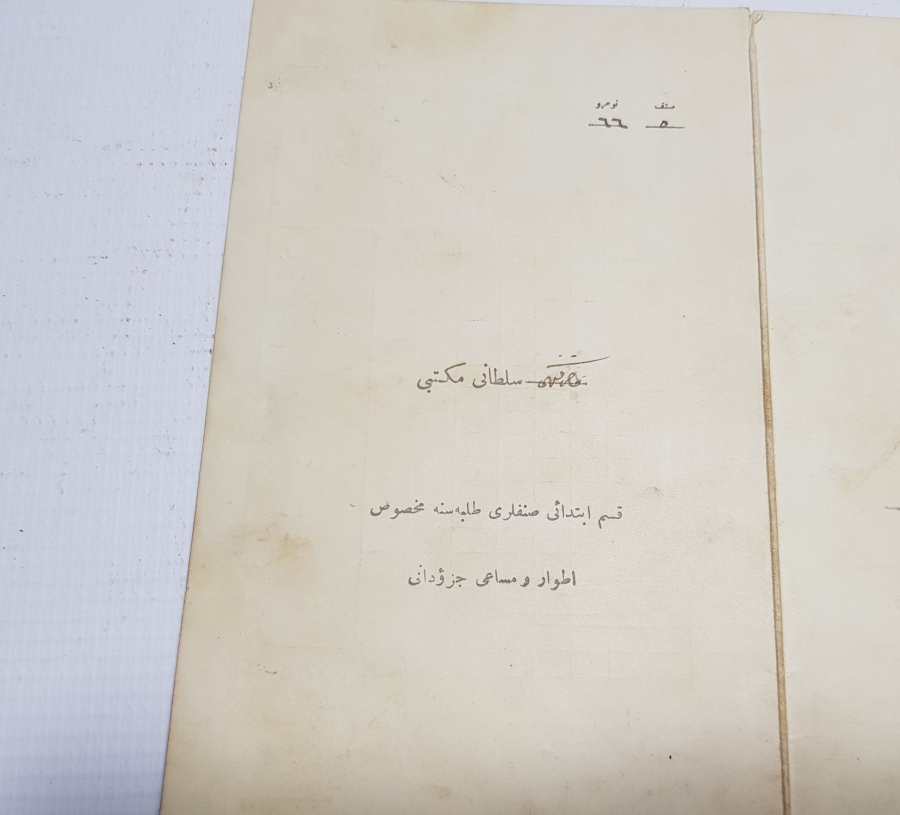 صنف نومرو
٥ ٦٦
سلطانی مکتبی
قسم ابتدائی صنفلری طلبه‌سنه مخصوص
اطوار و مساعی جزؤدانی